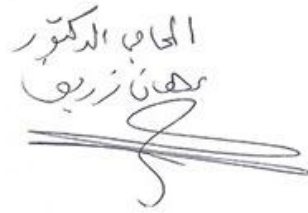 المحامي الدكتور
برهان زريق